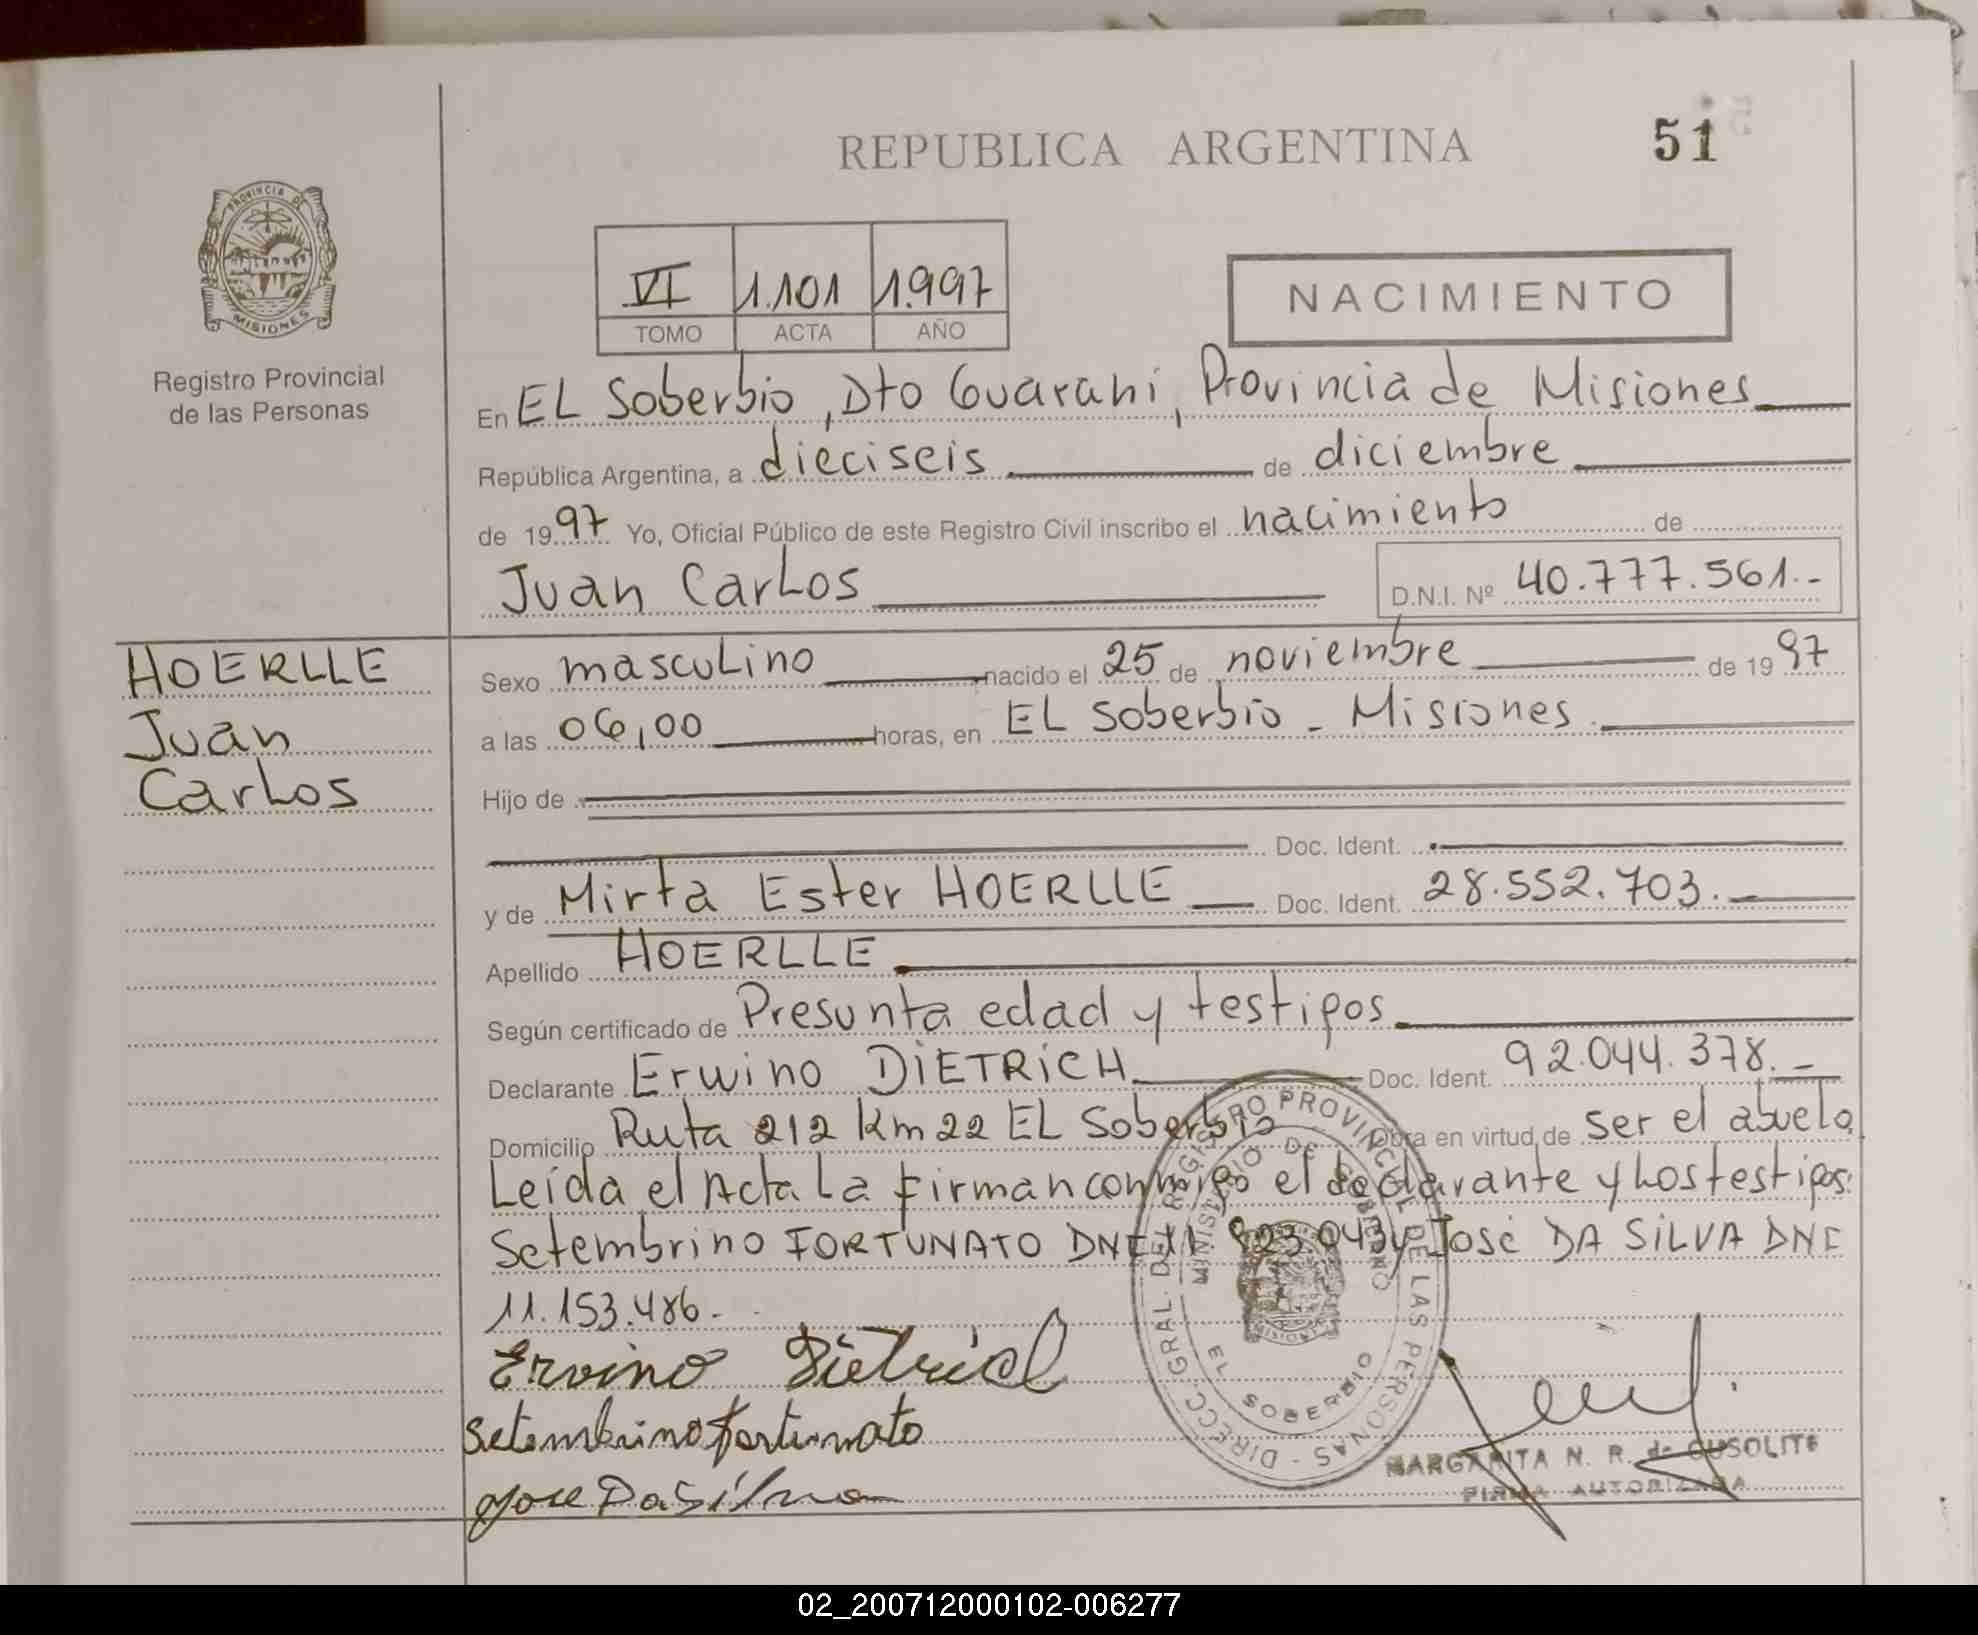 REPUBLICA ARGENTINA
51
PROVINCIA DE
MISIONES
Registro Provincial
de las Personas
VI 1.101 1.997
TOMO ACTA AÑO
NACIMIENTO
En EL Soberbio, Dto Guarani, Provincia de Misiones
República Argentina, a dieciseis de diciembre
de 1997 Yo, Oficial Público de este Registro Civil inscribo el nacimiento de
Juan Carlos D.N.I. Nº 40.777.561.-
HOERLLE
Juan
Carlos
Sexo masculino nacido el 25 de noviembre de 1997
a las 06,00 horas, en EL Soberbio - Misiones.
Hijo de
Doc. Ident.
y de Mirta Ester HOERLLE Doc. Ident. 28.552.703.
Apellido HOERLLE
Según certificado de Presunta edad y testigos
Declarante Erwino DIETRICH Doc. Ident. 92.044.378.-
Domicilio Ruta 212 Km 22 EL Soberbio Obra en virtud de ser el abuelo
Leída el Acta La firman conmigo el declarante y Los testigos:
Setembrino FORTUNATO DNI 923.043 y José DA SILVA DNI
11.153.486.-
Ervino Dietrich
Setembrino fortunato
Jose Da Silva
DIRECC. GRAL. DEL REGISTRO PROVINCIAL DE LAS PERSONAS -
MINISTERIO DE GOBIERNO
MISIONES
EL SOBERBIO
MARGARITA N. R. de CUSOLITO
FIRMA AUTORIZADA
02_200712000102-006277